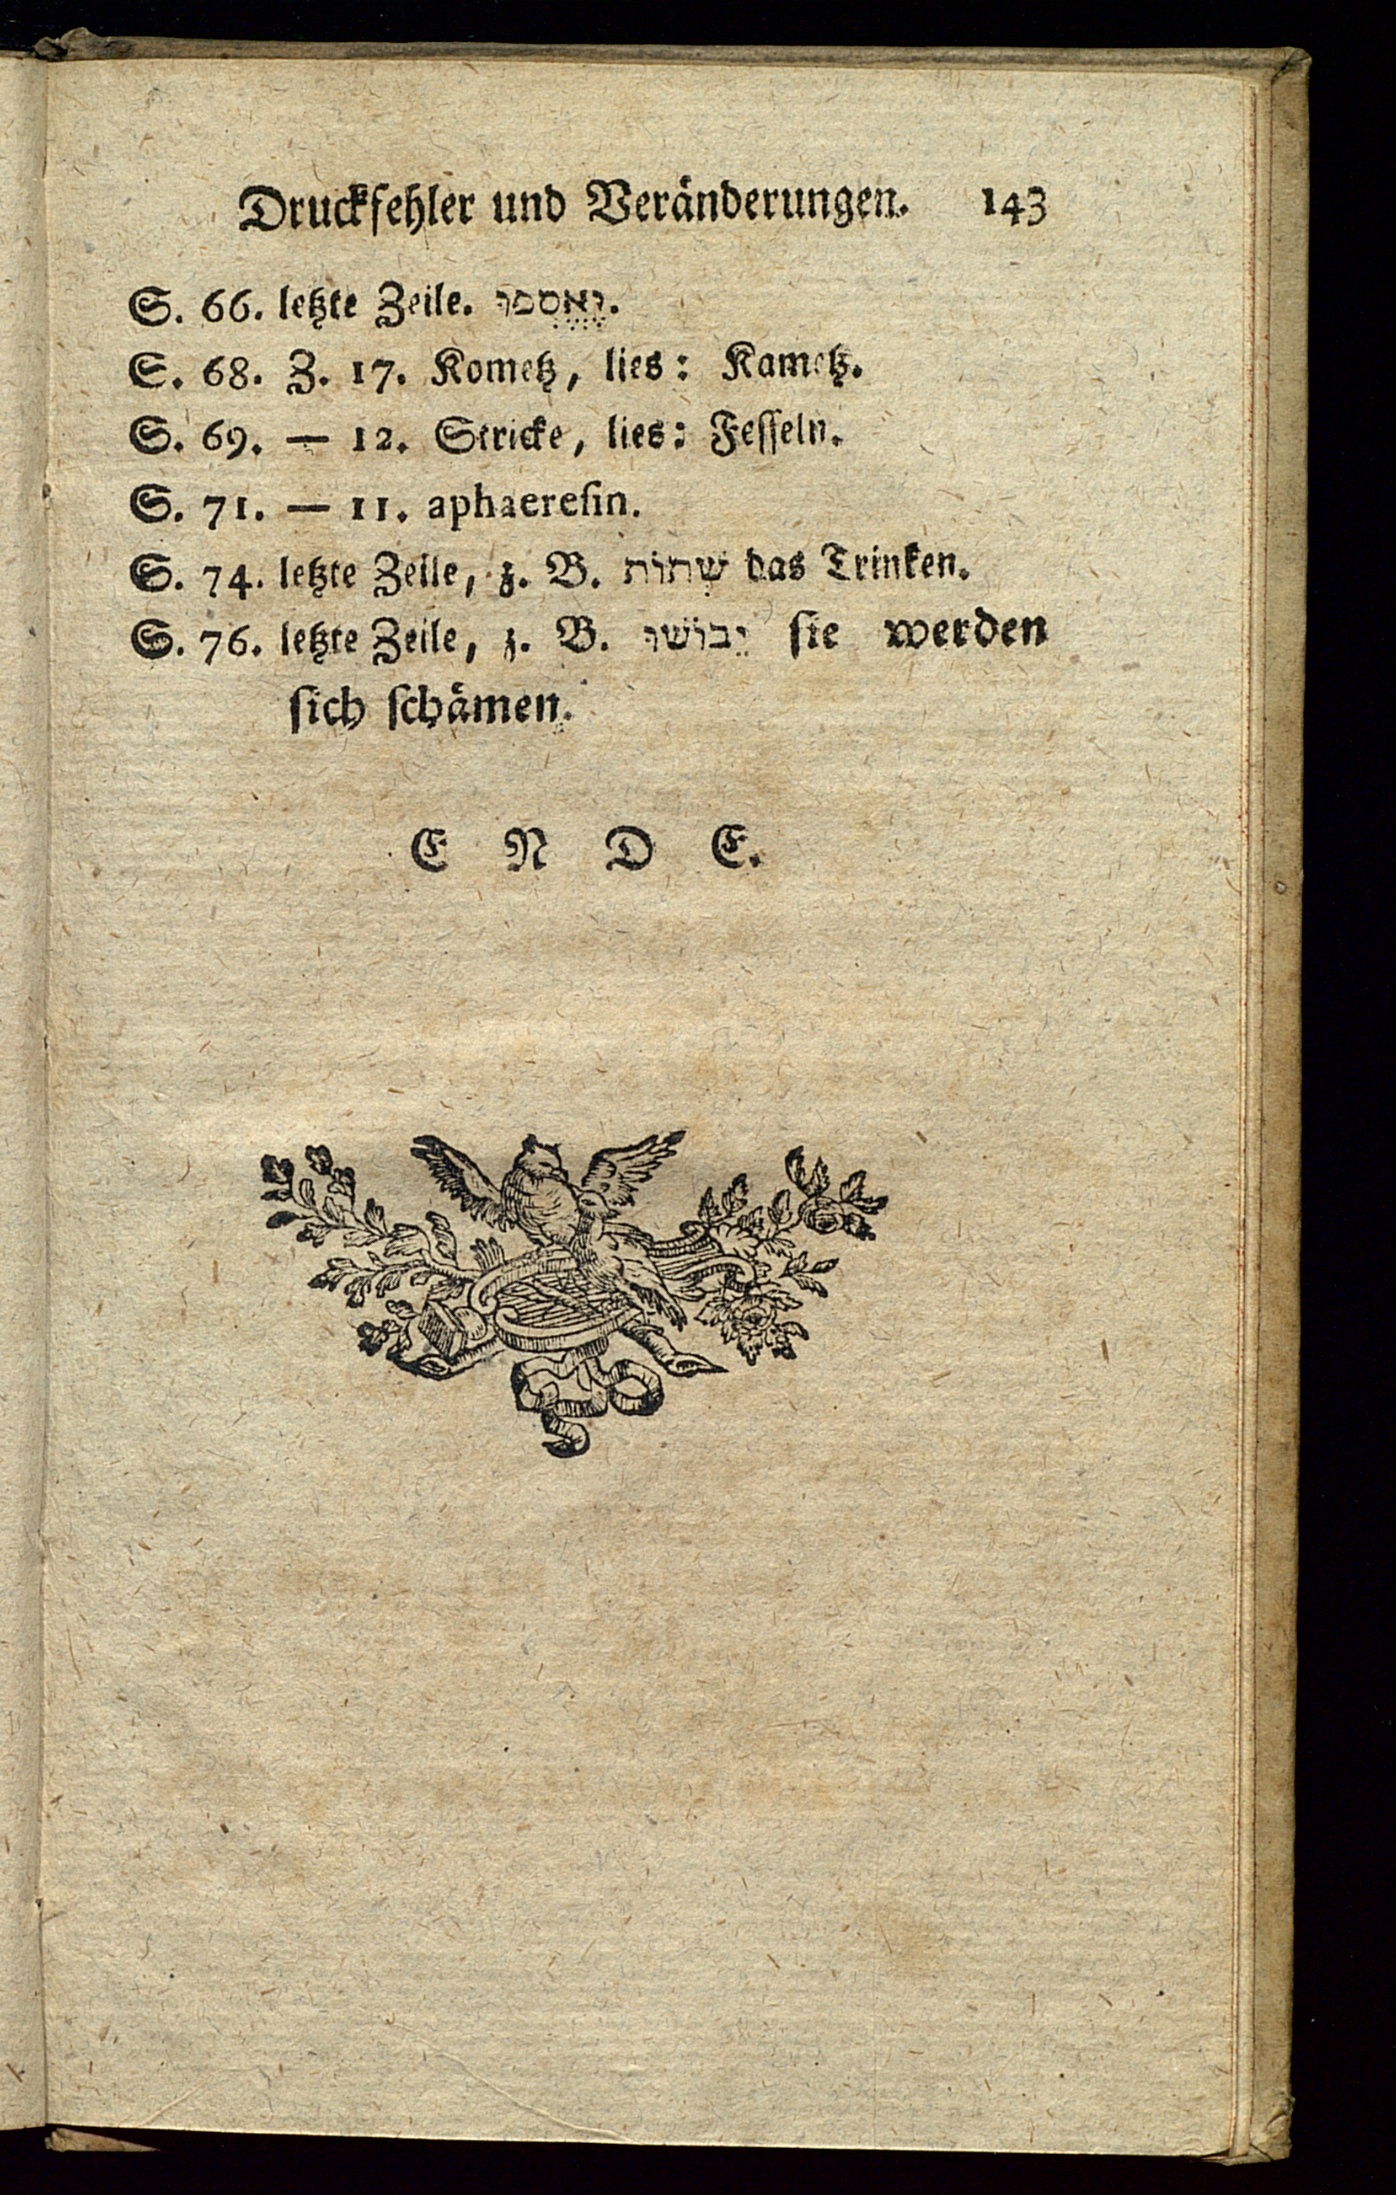 Druckfehler und Veränderungen. 143
S. 66. letzte Zeile. וָאֶסֱפֵּר.
S. 68. Z. 17. Kometz, lies: Kametz.
S. 69. — 12. Stricke, lies: Fesseln.
S. 71. — 11. aphaeresin.
S. 74. letzte Zeile, z. B. שְׁתוֹת das Trinken.
S. 76. letzte Zeile, z. B. יֵבוֹשׁוּ sie werden
sich schämen.
E N D E.